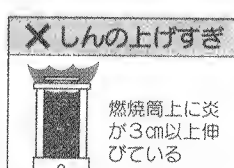 ✕しんの上げすぎ
燃焼筒上に炎
が3㎝以上伸
びている